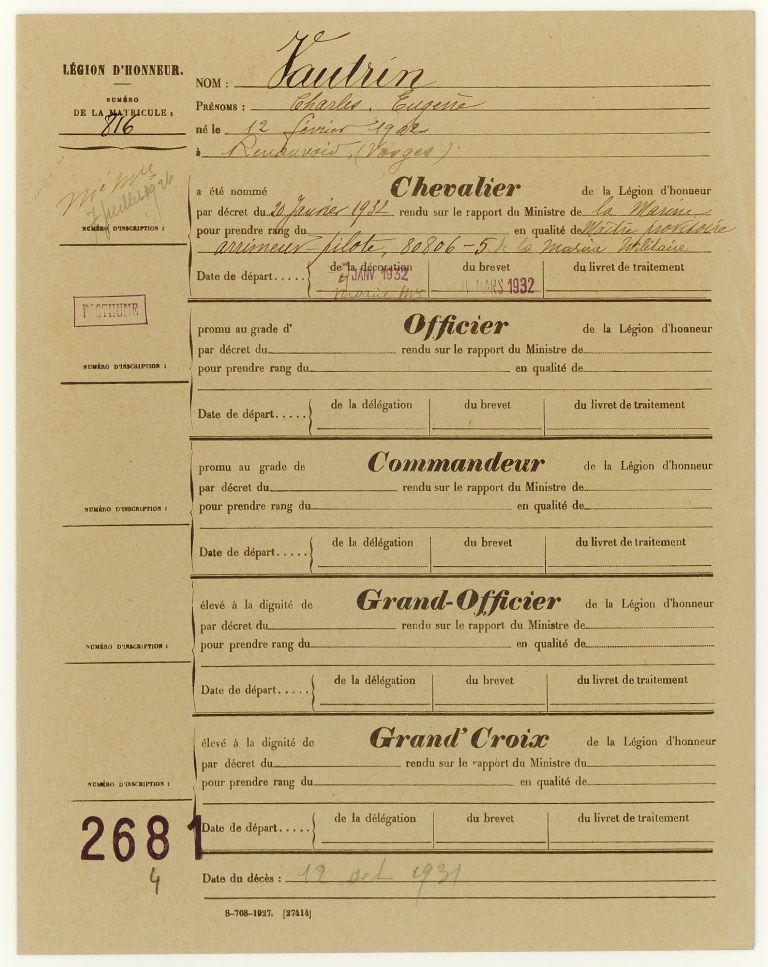 LÉGION D'HONNEUR.
NUMÉRO
DE LA MATRICULE :
816
NOM : Vautrin
PRÉNOMS : Charles, Eugène
né le 12 février 1902
à Renauvoid, (Vosges).
Mé Mre
7 juillet 1926
NUMÉRO D'INSCRIPTION :
a été nommé Chevalier de la Légion d'honneur
par décret du 20 Janvier 1932 rendu sur le rapport du Ministre de la Marine
pour prendre rang du en qualité de Maître provisoire
arrimeur-pilote, 80806-5 de la marine Militaire
Date de départ..... de la décoration du brevet du livret de traitement
JANV 1932 MARS 1932
POSTHUME
promu au grade d' Officier de la Légion d'honneur
par décret du rendu sur le rapport du Ministre de
NUMÉRO D'INSCRIPTION :
pour prendre rang du en qualité de
Date de départ..... de la délégation du brevet du livret de traitement
promu au grade de Commandeur de la Légion d'honneur
par décret du rendu sur le rapport du Ministre de
NUMÉRO D'INSCRIPTION :
pour prendre rang du en qualité de
Date de départ..... de la délégation du brevet du livret de traitement
élevé à la dignité de Grand-Officier de la Légion d'honneur
par décret du rendu sur le rapport du Ministre de
NUMÉRO D'INSCRIPTION :
pour prendre rang du en qualité de
Date de départ..... de la délégation du brevet du livret de traitement
élevé à la dignité de Grand'Croix de la Légion d'honneur
par décret du rendu sur le rapport du Ministre de
NUMÉRO D'INSCRIPTION :
pour prendre rang du en qualité de
Date de départ..... de la délégation du brevet du livret de traitement
2681
4
Date du décès : 12 oct 1931
8-708-1927. [27414]